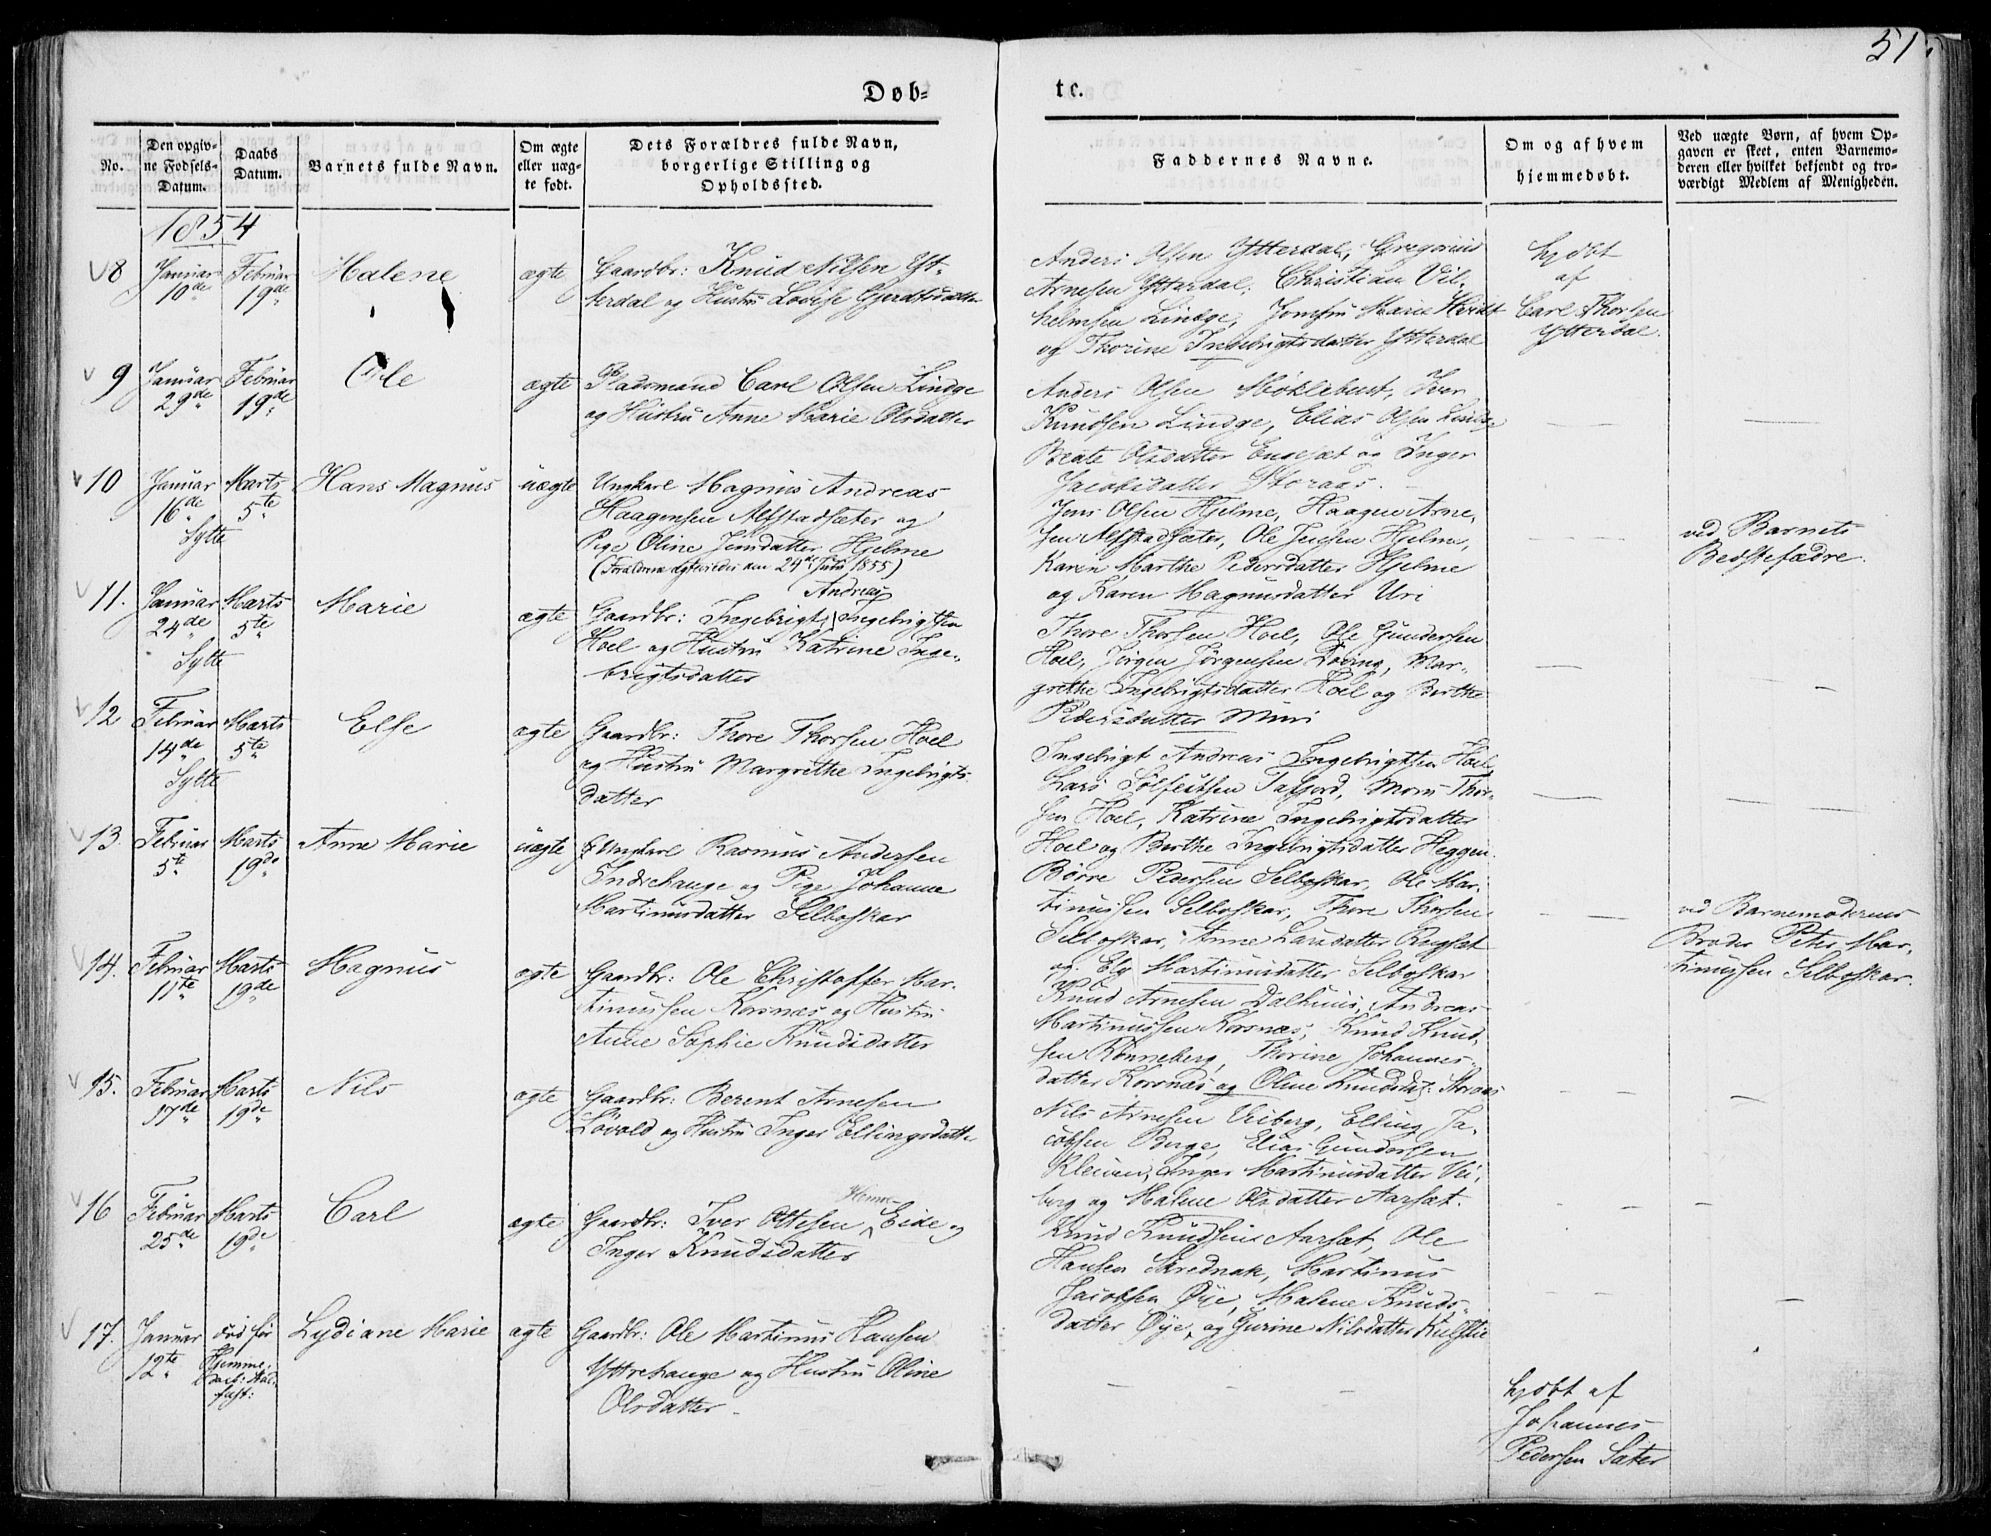 51.
Døb-
te.
No.
Den opgiv-
ne Fødsels-
Datum.
Daabs
Datum.
Barnets fulde Navn.
Om ægte
eller uæg-
te født.
Dets Forældres fulde Navn,
borgerlige Stilling og
Opholdssted.
Faddernes Navne.
Om og af hvem
hjemmedøbt.
Ved uægte Børn, af hvem Op-
gaven er skeet, enten Barnemo-
deren eller hvilket bekjendt og tro-
værdigt Medlem af Menigheden.
1854
8
Januar
10de
Februar
19de
Malene
ægte
Gaardbr: Knud Nilsen Yt-
terdal og Hustru Lovise Gjerdtsdatter
Anders Olsen Ytterdal, Gregorius
Arnesen Ytterdal, Christian Vil-
helmsen Lindge, Jomfru Marie
og Thorine Ingebrigtsdatter Ytterdal
hjdbt
af
Carl Thorsen
Ytterdal.
9
Januar
29de
Februar
19de
Ole
ægte
Pladsmand Carl Olsen Lindge
og Hustru Anne Marie Olsdatter
Anders Olsen Møklebust, Iver
Knudsen Lindge, Elias Olsen Lindge
Beate Olsdatter Engeset og Inger
Jacobsdatter Storaas.
10
Januar
16de
Sylte
Marts
5te
Hans Magnus
uægte
Ungkarl Magnus Andreas
Haagensen Alfstadsæter og
Pige Oline Jensdatter Hjelme
(Forældrene ægteviedes den 24de Juni 1855)
Jens Olsen Hjelme, Haagen Arne-
sen Alfstadsæter, Ole Jensen Hjelme,
Karen Marthe Pedersdatter Hjelme
og Karen Magnusdatter Uri
ved Barnets
Bedstefædre.
11.
Januar
24de
Sylte
Marts
5te
Marie
ægte
Andreas
Gaardbr: Ingebrigt Ingebrigtsen
Hoel og Hustru Katrine Inge-
brigtsdatter
Thore Thorsen Hoel, Ole Gundersen
Hoel, Jørgen Jørgensen Døving, Mar-
grethe Ingebrigtsdatter Hoel og Berthe
Pedersdatter Muri
12
Februar
14de
Sylte
Marts
5te
Else
ægte
Gaardbr: Thore Thorsen Hoel
og Hustru Margrethe Ingebrigts-
datter
Ingebrigt Andreas Ingebrigtsen Hoel
Lars Sølfestsen Tafjord, Mons Thor-
sen Hoel, Katrine Ingebrigtsdatter
Hoel og Berthe Ingebrigtsdatter Heggen.
13.
Februar
5te
Marts
19de
Anne Marie
uægte
Ungkarl Rasmus Andersen
Indrehauge og Pige Johanne
Martinusdatter Selboskar
Børre Pedersen Selboskar, Ole Mar-
tinussen Selboskar, Thore Thorsen
Selboskar, Anne Larsdatter
og Ely Martinusdatter Selboskar
ved Barnemoderens
Broder Peter Mar-
tinussen Selboskar.
14.
Februar
11te
Marts
19de
Magnus
ægte
Gaardbr: Ole Christoffer Mar-
tinussen Korsnæs og Hustru
Anne Sophie Knudsdatter
Knud Arnesen Dalhuus, Andreas
Martinussen Korsnæs, Knud Knud-
sen Rønneberg, Thorine Johannes-
datter Korsnæs og Oline Knudsdat: Storaas
15.
Februar
17de
Marts
19de
Nils
ægte
Gaardbr: Berent Arnesen
Løvold og Hustru Inger Ellingsdatter
Nils Arnesen Veiberg, Elling Ja-
cobsen Berge, Elias Gundersen
Kleiven, Inger Martinusdatter Vei-
berg og Malene Olsdatter Aarset.
16
Februar
25de
Marts
19de
Carl
ægte
Gaardbr: Iver Ottesen Eide og
Inger Knudsdatter
Knud Knudsen Aarset, Ole
Hansen Skrednak, Martinus
Jacobsen Øye, Malene Knuds-
datter Øye, og Gurine Nilsdatter
17.
Januar
12te
død før
Hjemme-
Lydiane Marie
ægte
Gaardbr: Ole Martinus Hansen
Yttrehauge og Hustru Oline
Olsdatter
hjdbt af
Johannes
Pedersen Sæter